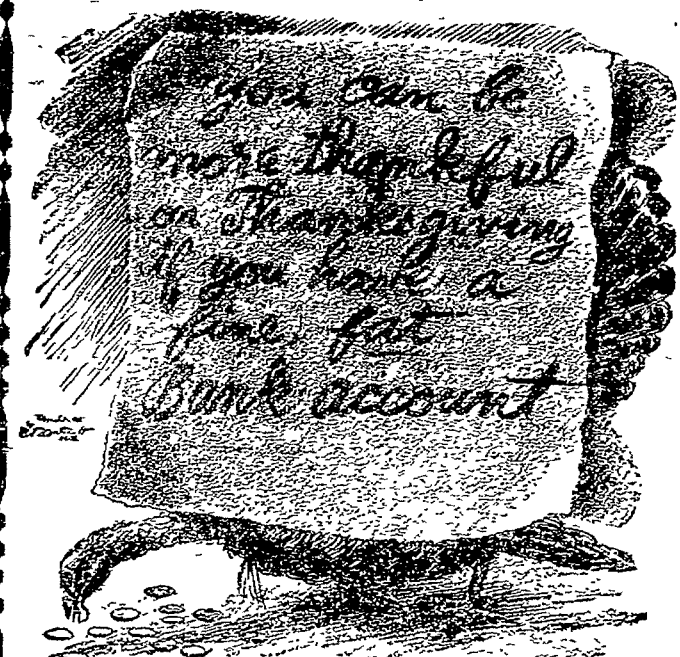 you can be
more thankful
on Thanksgiving
if you have a
fine, fat
Bank account